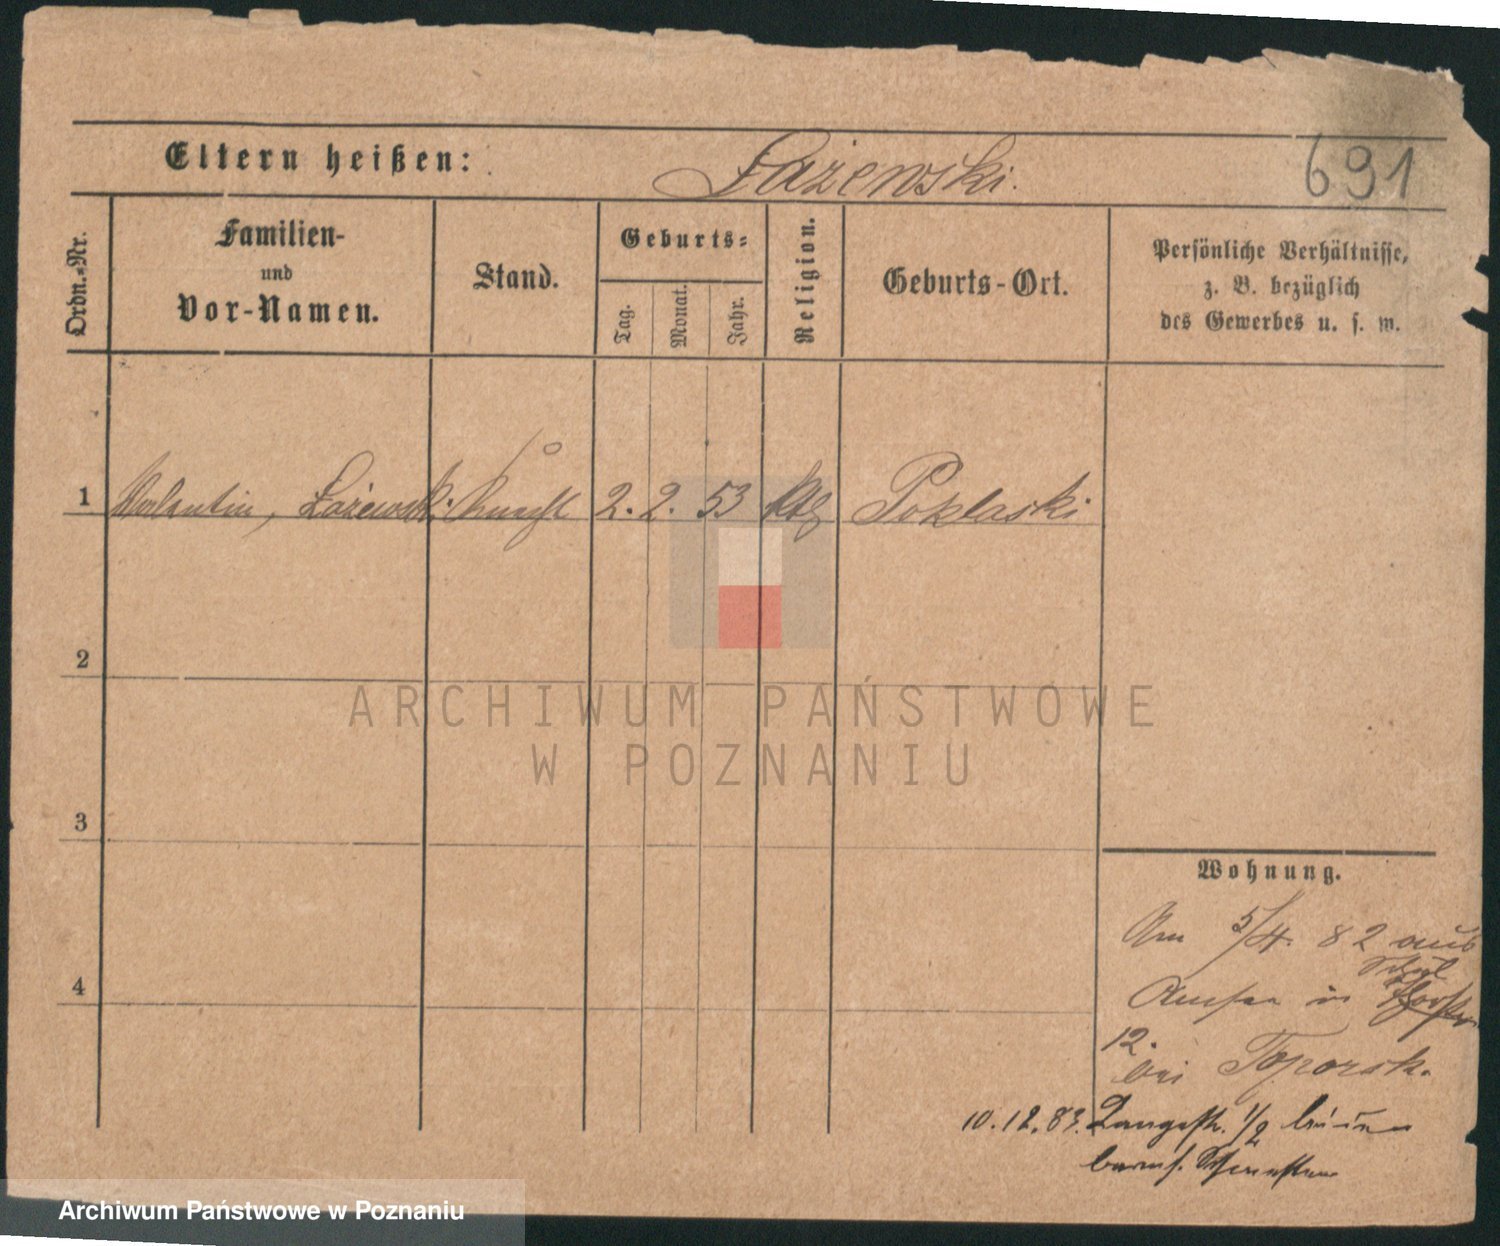 Eltern heißen: Łażewski. 691
Ordn.-Nr.
Familien-
und
Vor-Namen.
Stand.
Geburts-
Tag.
Monat.
Jahr.
Religion.
Geburts-Ort.
Persönliche Verhältnisse,
z. B. bezüglich
des Gewerbes u. s. w.
1 Valentin, Łażewski Knecht 2. 2. 53 ktl Poklaski
2
3
4
ARCHIWUM PAŃSTWOWE
W POZNANIU
Wohnung.
Am 5/4. 82 aus
in
12.
bei Toporsk.
10.12.83. Langestr. 1/2 beim
Archiwum Państwowe w Poznaniu